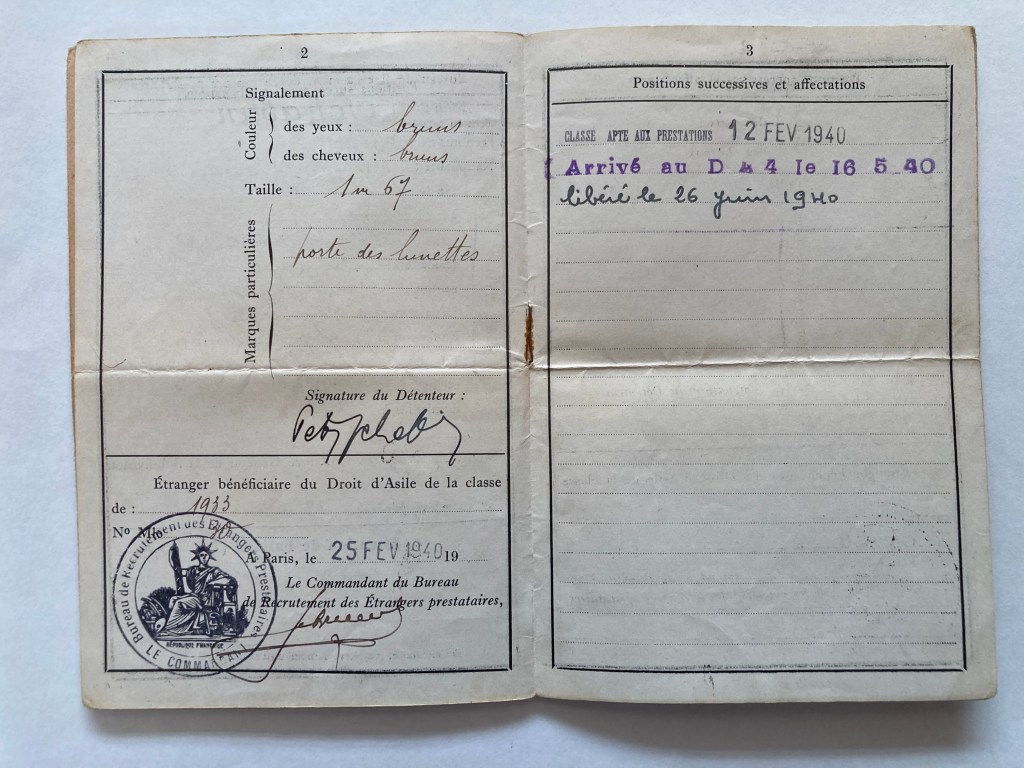 2
Signalement
Couleur
des yeux : bruns
des cheveux : bruns
Taille : 1m 67
Marques particulières
porte des lunettes
Signature du Détenteur :
Étranger bénéficiaire du Droit d'Asile de la classe
de : 1933
No Mle
A Paris, le 25 FEV 1940 19
Le Commandant du Bureau
de Recrutement des Étrangers prestataires,
Bureau de Recrutement des Etrangers Prestataires
RÉPUBLIQUE FRANÇAISE
LE COMMANDANT
3
Positions successives et affectations
CLASSE APTE AUX PRESTATIONS 12 FEV 1940
Arrivé au D 4 le 16 5 40
libéré le 26 juin 1940